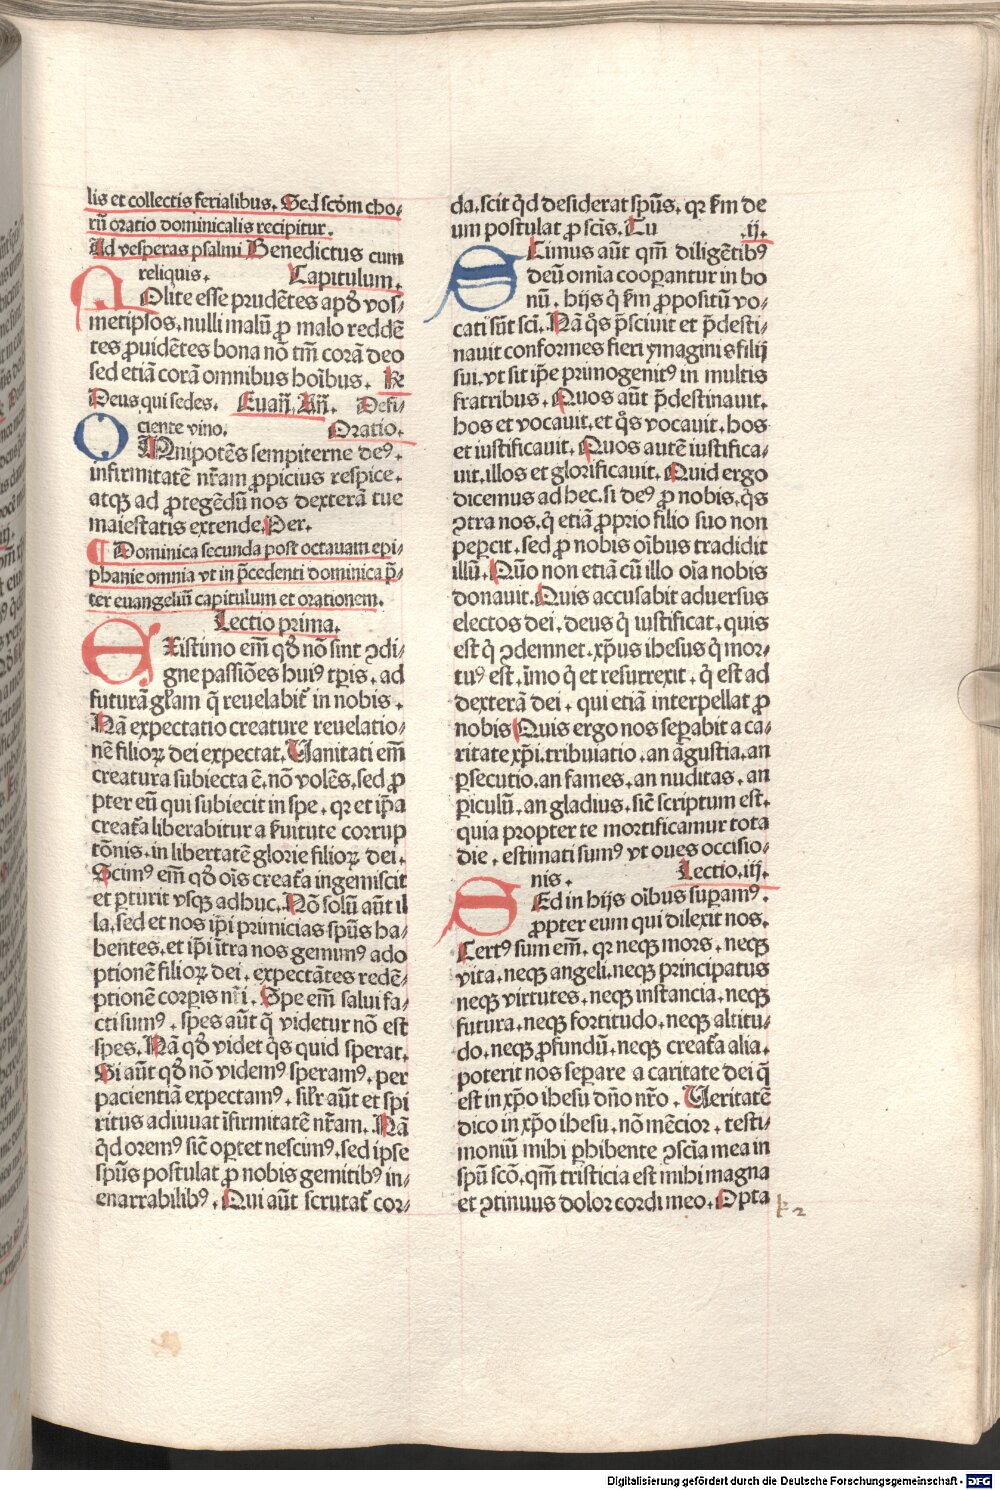 lis et collectis ferialibus. Sed scdm cho⸗
rū oratio dominicalis recipitur.
Ad vesperas psalmi Benedictus cum
reliquis. Capitulum.
NOlite esse prudētes apđ vos⸗
metipsos. nulli malū ꝓ malo reddē
tes ꝓuidētes bona nō tm̄ corā deo
sed etiā corā omnibus hoībus. R̄
Deus qui sedes. Euan̄. An̄. Defi⸗
ciente vino. Oratio.
OMnipotēs sempiterne deꝰ.
infirmitatē nr̄am ꝓpicius respice.
atqꝫ ad ꝓtegēdū nos dexterā tue
maiestatis extende. Per.
¶ Dominica secunda post octauam epi⸗
phanie omnia vt in p̄cedenti dominica p̄⸗
ter euangeliū capitulum et orationem.
Lectio prima.
EXistimo em̄ qđ nō sint ꝯdi⸗
gne passiōes huiꝰ tꝑis. ad
futurā gl̄am q̄ reuelabit̄ in nobis.
Nā expectatio creature reuelatio⸗
nē filioꝝ dei expectat. Uanitati em̄
creatura subiecta ē. nō volēs. sed ꝓ
pter eū qui subiecit in spe. qꝛ et ip̄a
creat̄a liberabitur a ẜuitute corrup
tōnis. in libertatē glorie filioꝝ dei.
Scimꝰ em̄ qđ oīs creat̄a ingemiscit
et ꝑturit vsqꝫ adhuc. Nō solū aūt il
la. sed et nos ip̄i primicias spūs ha⸗
bentes. et ip̄i īt̄ra nos gemimꝰ ado
ptionē filioꝝ dei. expectātes redē⸗
ptionē corꝑis nr̄i. Spe em̄ salui fa⸗
cti sumꝰ. spes aūt q̄ videtur nō est
spes. Nā qđ videt q̄s quid sperat.
Si aūt qđ nō videmꝰ speramꝰ. per
pacientiā expectamꝰ. sil̄r aūt et spi
ritus adiuuat īfirmitatē nr̄am. Nā
q̄d oremꝰ sic̄ oꝑtet nescimꝰ. sed ipse
spūs postulat ꝓ nobis gemitibꝰ in⸗
enarrabilibꝰ. Qui aūt scrutat̄ cor⸗
da. scit q̄d desiderat spūs. qꝛ ẜm de
um postulat ꝓ scīs. Tu .ij.
SCimus aūt qm̄ diligētibꝰ
deū omīa cooꝑantur in bo
nū. hijs q̄ ẜm ꝓpositū vo⸗
cati sūt scī. Nā q̄s p̄sciuit et p̄desti⸗
nauit conformes fieri ymaginis filij
sui. vt sit ip̄e primogenitꝰ in multis
fratribus. Quos aūt p̄destinauit.
hos et vocauit. et q̄s vocauit. hos
et iustificauit. Quos autē iustifica⸗
uit. illos et glorificauit. Quid ergo
dicemus ad hec. si deꝰ ꝓ nobis. q̄s
ꝯtra nos. q̄ etiā ꝓprio filio suo non
peꝑcit. sed ꝓ nobis oībus tradidit
illū. Quō non etiā cū illo oīa nobis
donauit. Quis accusabit aduersus
electos dei. deus q̄ iustificat. quis
est q̄ ꝯdemnet. xp̄us ihesus q̄ mor⸗
tuꝰ est. īmo q̄ et resurrexit. q̄ est ad
dexterā dei. qui etiā interpellat ꝓ
nobis Quis ergo nos seꝑabit a ca⸗
ritate xp̄i. tribulatio. an āgustia. an
ꝑsecutio. an fames. an nuditas. an
ꝑiculū. an gladius. sic̄ scriptum est.
quia propter te mortificamur tota
die. estimati sumꝰ vt oues occisio⸗
nis. Lectio. iij.
SEd in hijs oībus suꝑamꝰ.
ꝓpter eum qui dilexit nos.
Certꝰ sum em̄. qꝛ neqꝫ mors. neqꝫ
vita. neqꝫ angeli. neqꝫ principatus
neqꝫ virtutes. neqꝫ instancia. neqꝫ
futura. neqꝫ fortitudo. neqꝫ altitu⸗
do. neqꝫ ꝓfundū. neqꝫ creat̄a alia.
poterit nos seꝑare a caritate dei q̄
est in xp̄o ihesu dn̄o nr̄o. Ueritatē
dico in xp̄o ihesu. nō mēcior. testi⸗
moniū mihi ꝑhibente ꝯsciā mea in
spū scō. qm̄ tristicia est mihi magna
et ꝯtinuus dolor cordi meo. Opta
k 2
Digitalisierung gefördert durch die Deutsche Forschungsgemeinschaft - DFG